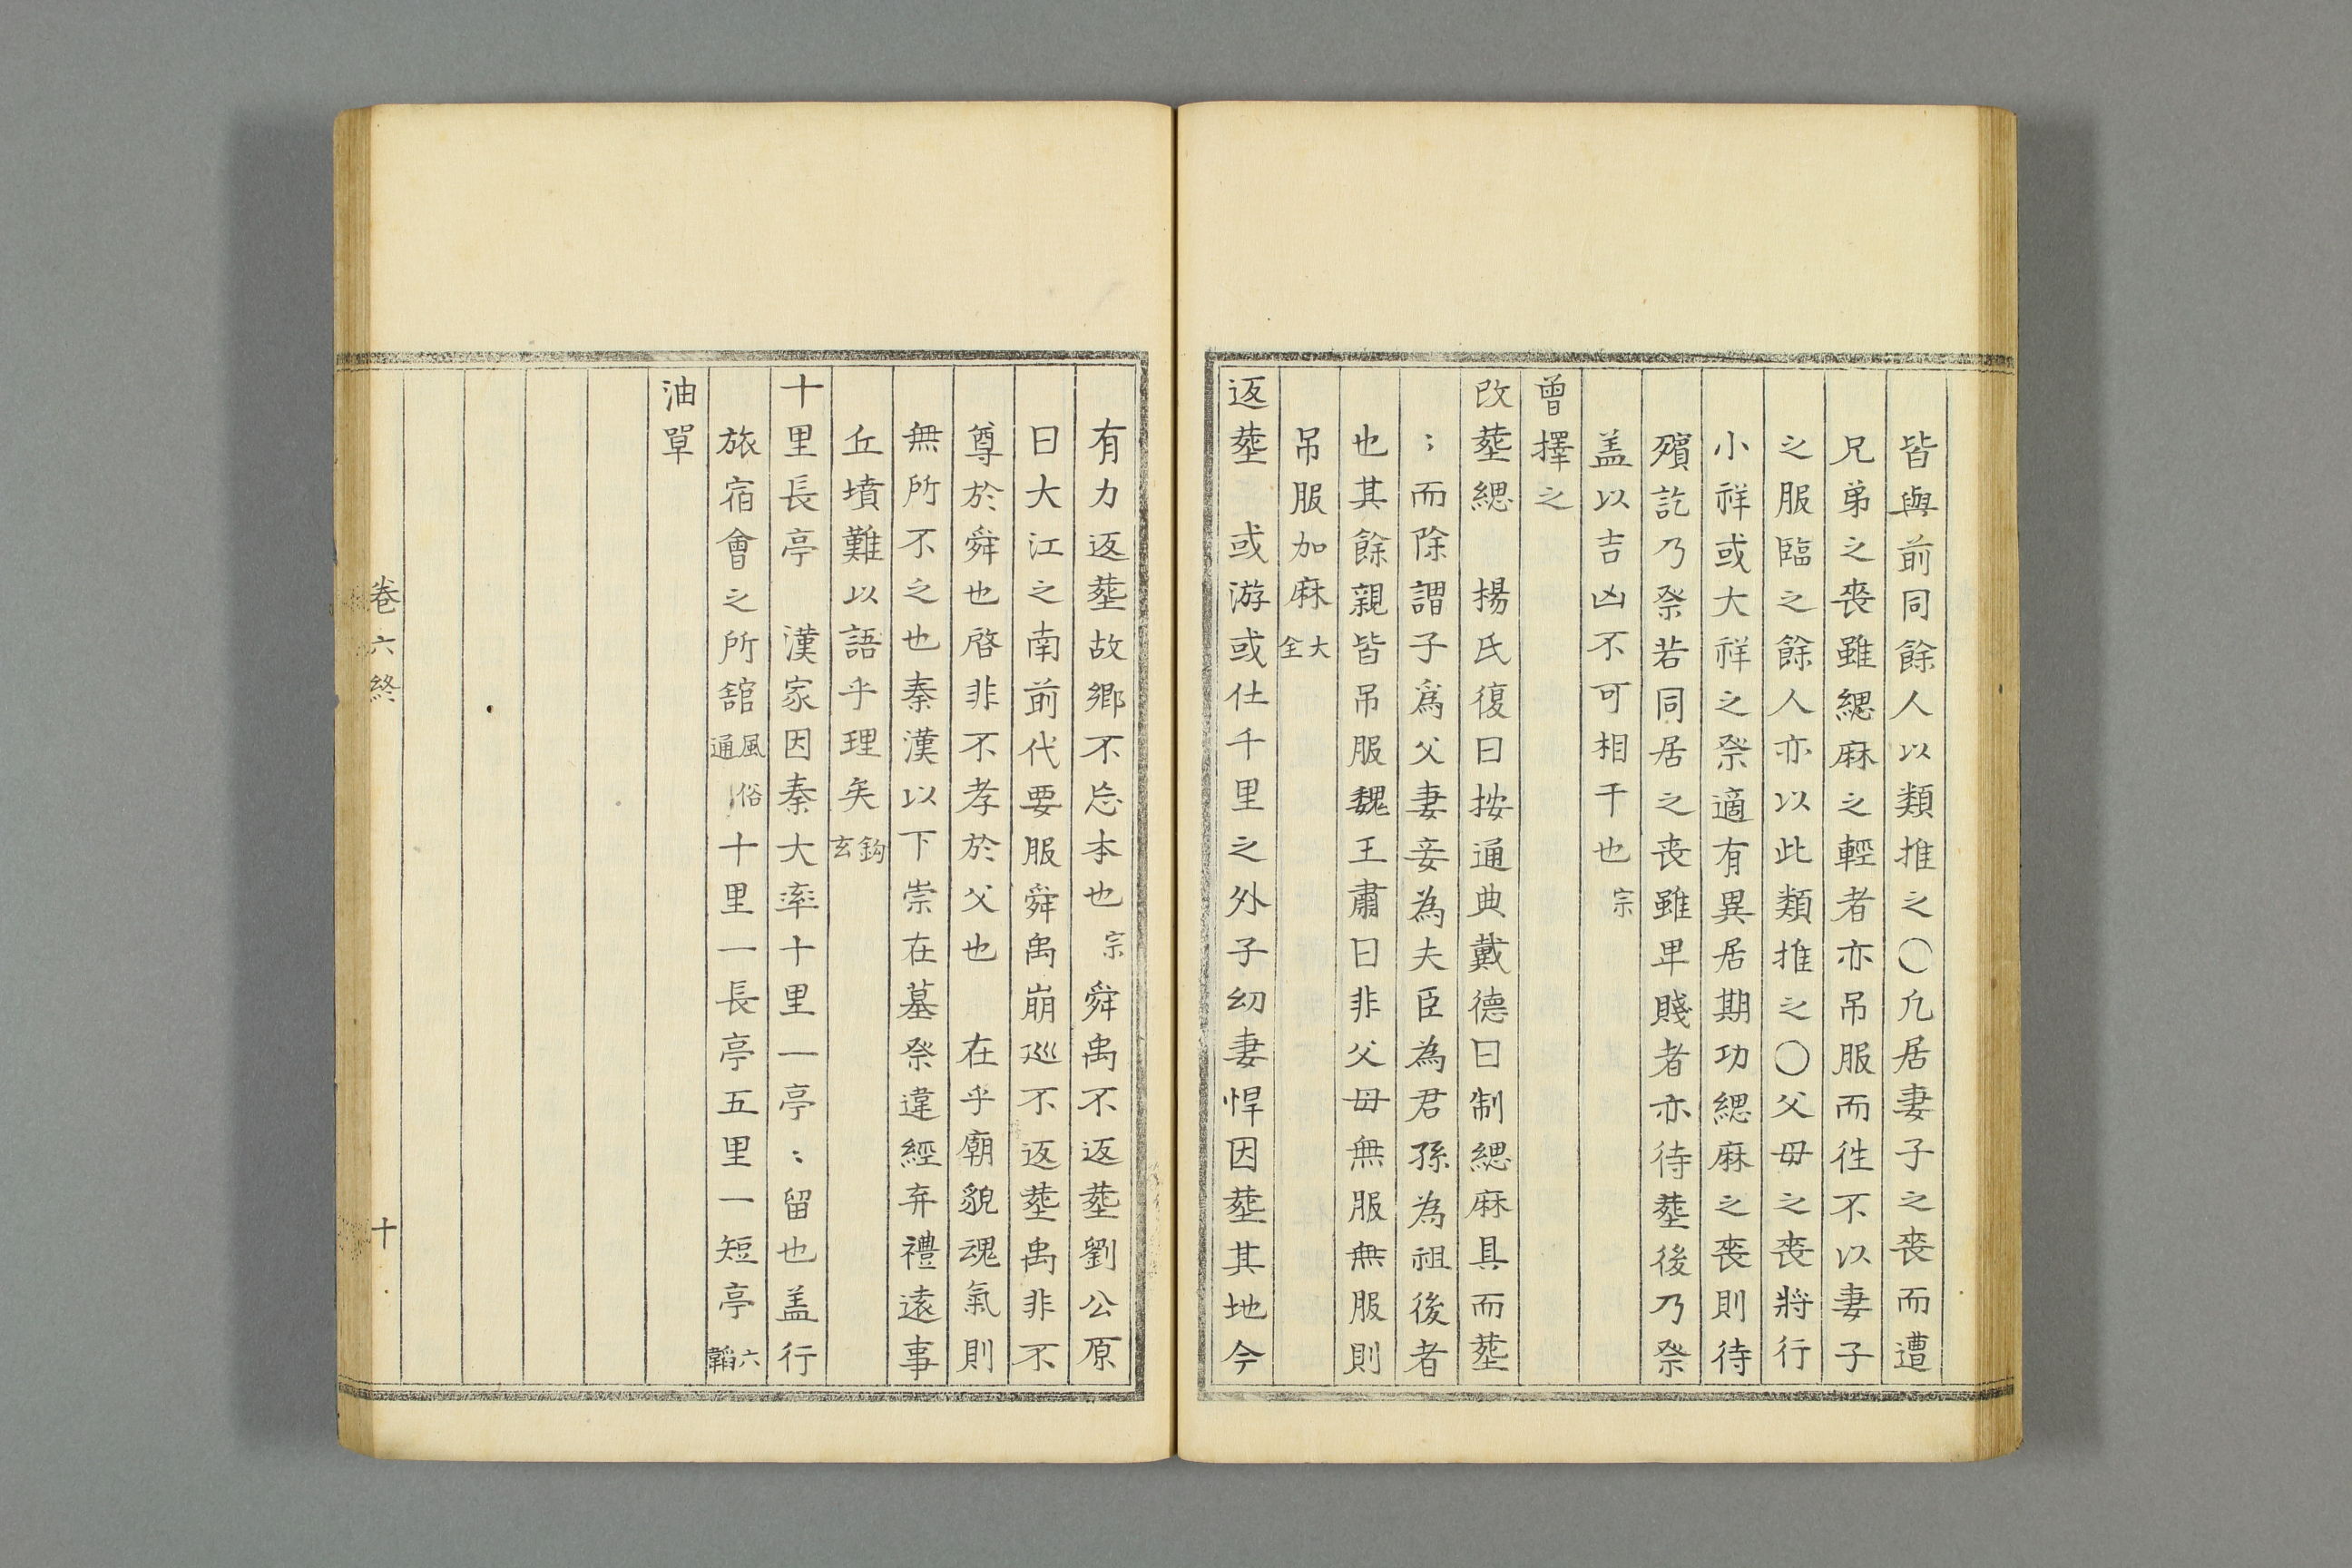 皆與前同餘人以類推之○凢居妻子之喪而遭
兄弟之喪雖緦麻之輕者亦吊服而徃不以妻子
之服臨之餘人亦以此類推之○父毋之喪將行
小祥或大祥之祭適有異居期功緦麻之喪則待
殯訖乃祭若同居之丧雖卑賤者亦待塟後乃祭
盖以吉凶不可相干也宗
曾擇之
改塟緦 揚氏復曰按通典戴德曰制緦麻具而塟
〻而除謂子爲父妻妾為夫臣為君孫為祖後者
也其餘親皆吊服魏王肅曰非父毋無服無服則
吊服加麻大全
返塟 或游或仕千里之外子幼妻悍因塟其地今
有力返塟故鄉不忘本也宗舜禹不返塟劉公原
曰大江之南前代要服舜禹崩巡不返塟禹非不
尊於舜也啓非不孝於父也 在乎廟貌魂氣則
無所不之也秦漢以下崇在墓祭違經弃禮逺事
丘墳難以語乎理矣鈎玄
十里長亭 漢家因秦大率十里一亭〻留也盖行
旅宿會之所舘風俗通十里一長亭五里一短亭六韜
油單
卷六終
十